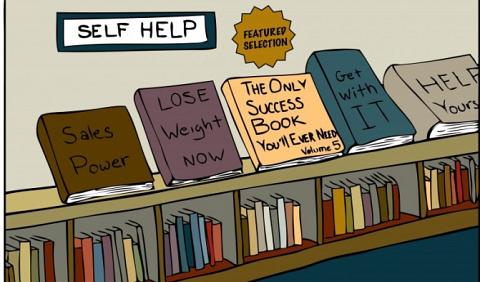 SELF HELP
FEATURED
SELECTION
Sales
Power
LOSE
Weight
NOW
THE ONLY
SUCCESS
BOOK
YOU'll EVER NEED
Volume 5
Get
with
IT
HELP
Yours